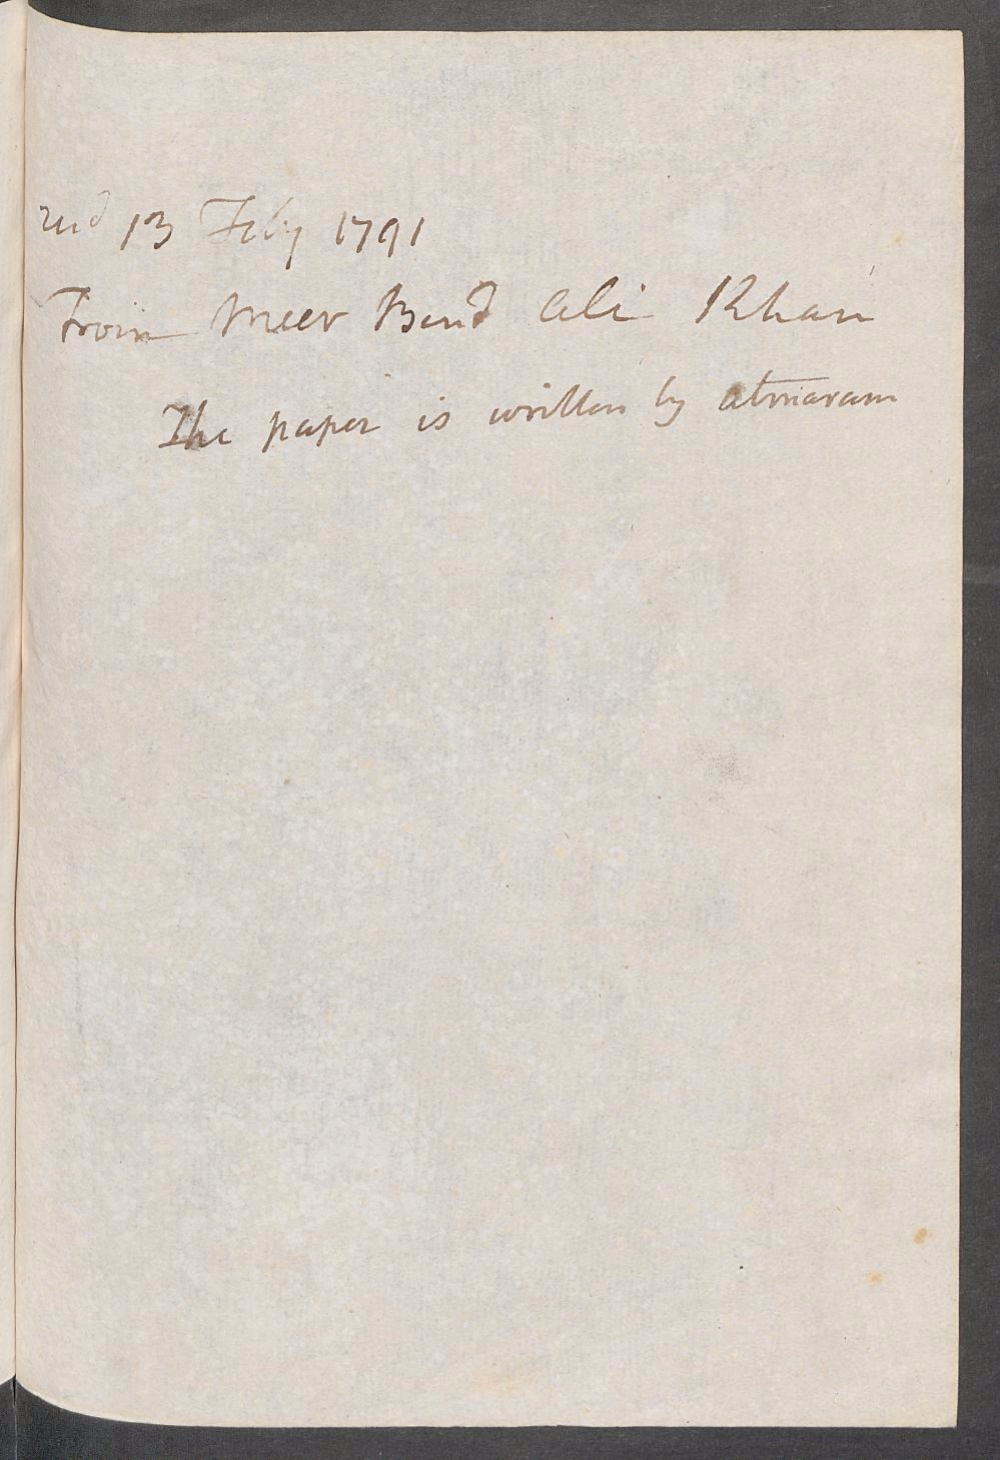 recd 13 Feby 1791
From Meer Bund Ali Khan
The paper is written by atmaram